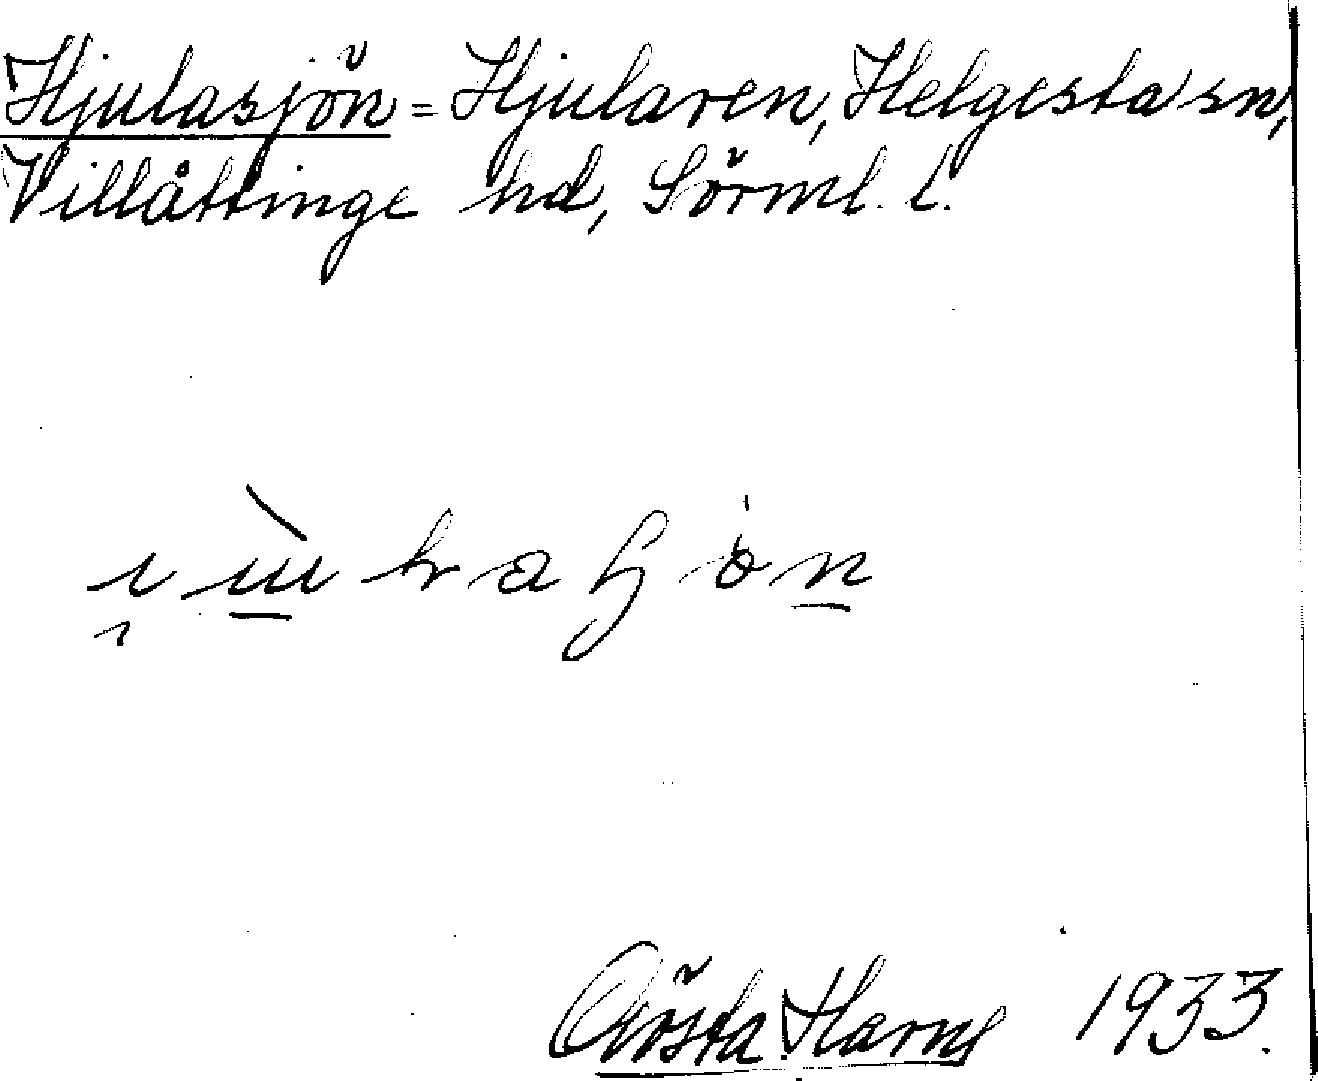 Hjulasjön = Hjularen, Helgesta sn,
Villåttinge hd, Sörml. l.
Gösta Harns 1933.